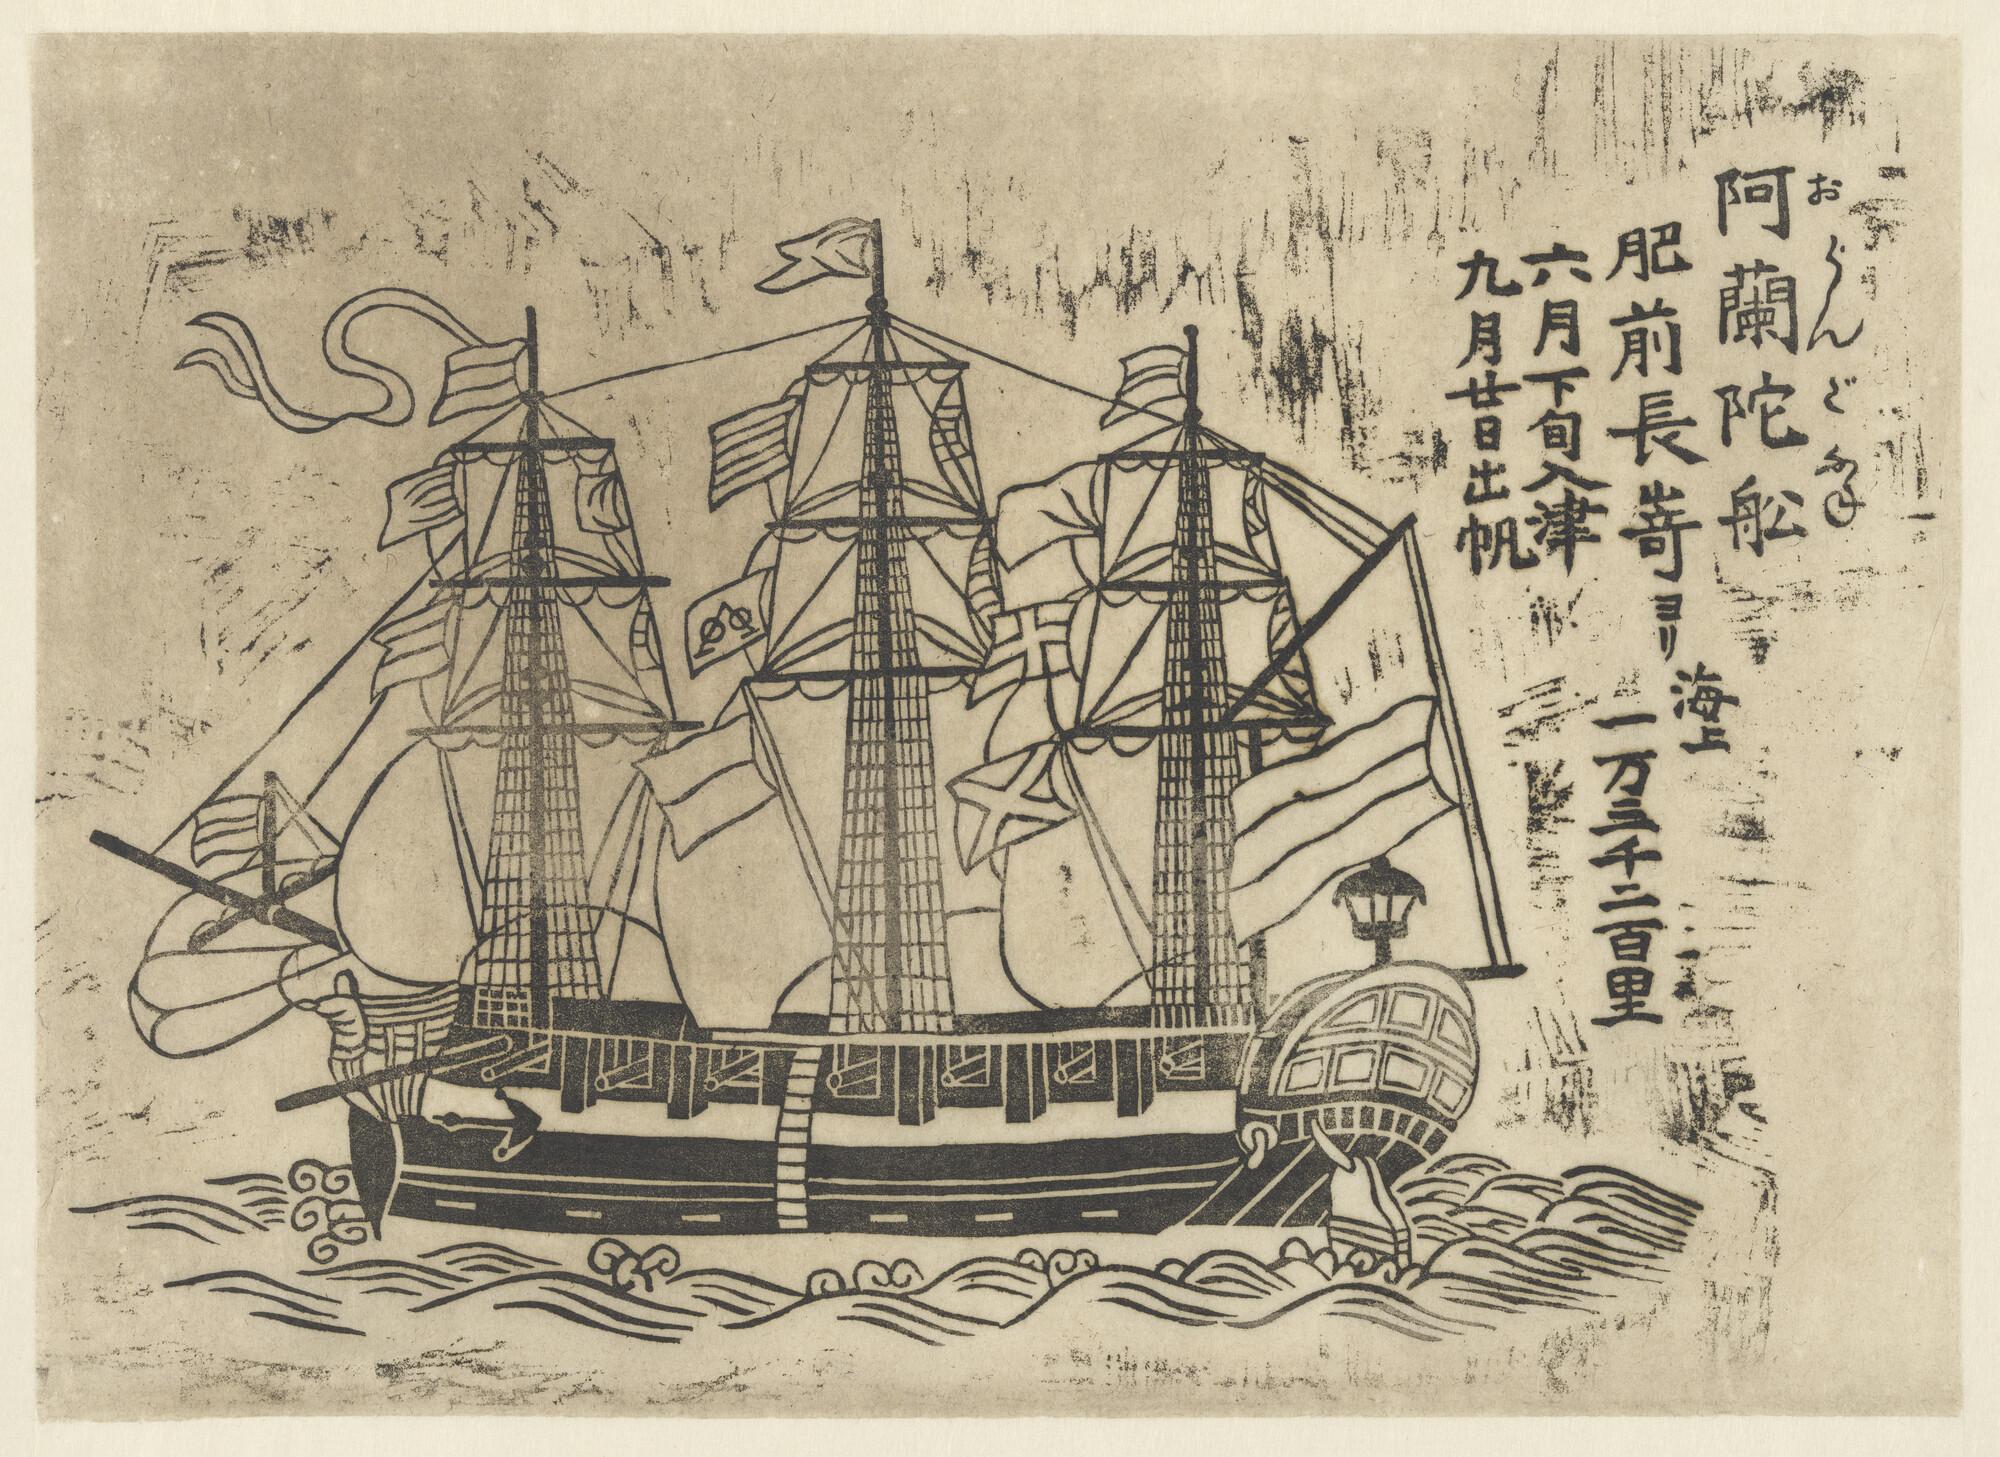 阿蘭陀舩
おらんだふね
肥前長嵜ヨリ
海上
一万三千二百里
六月下旬入津
九月廿日出帆